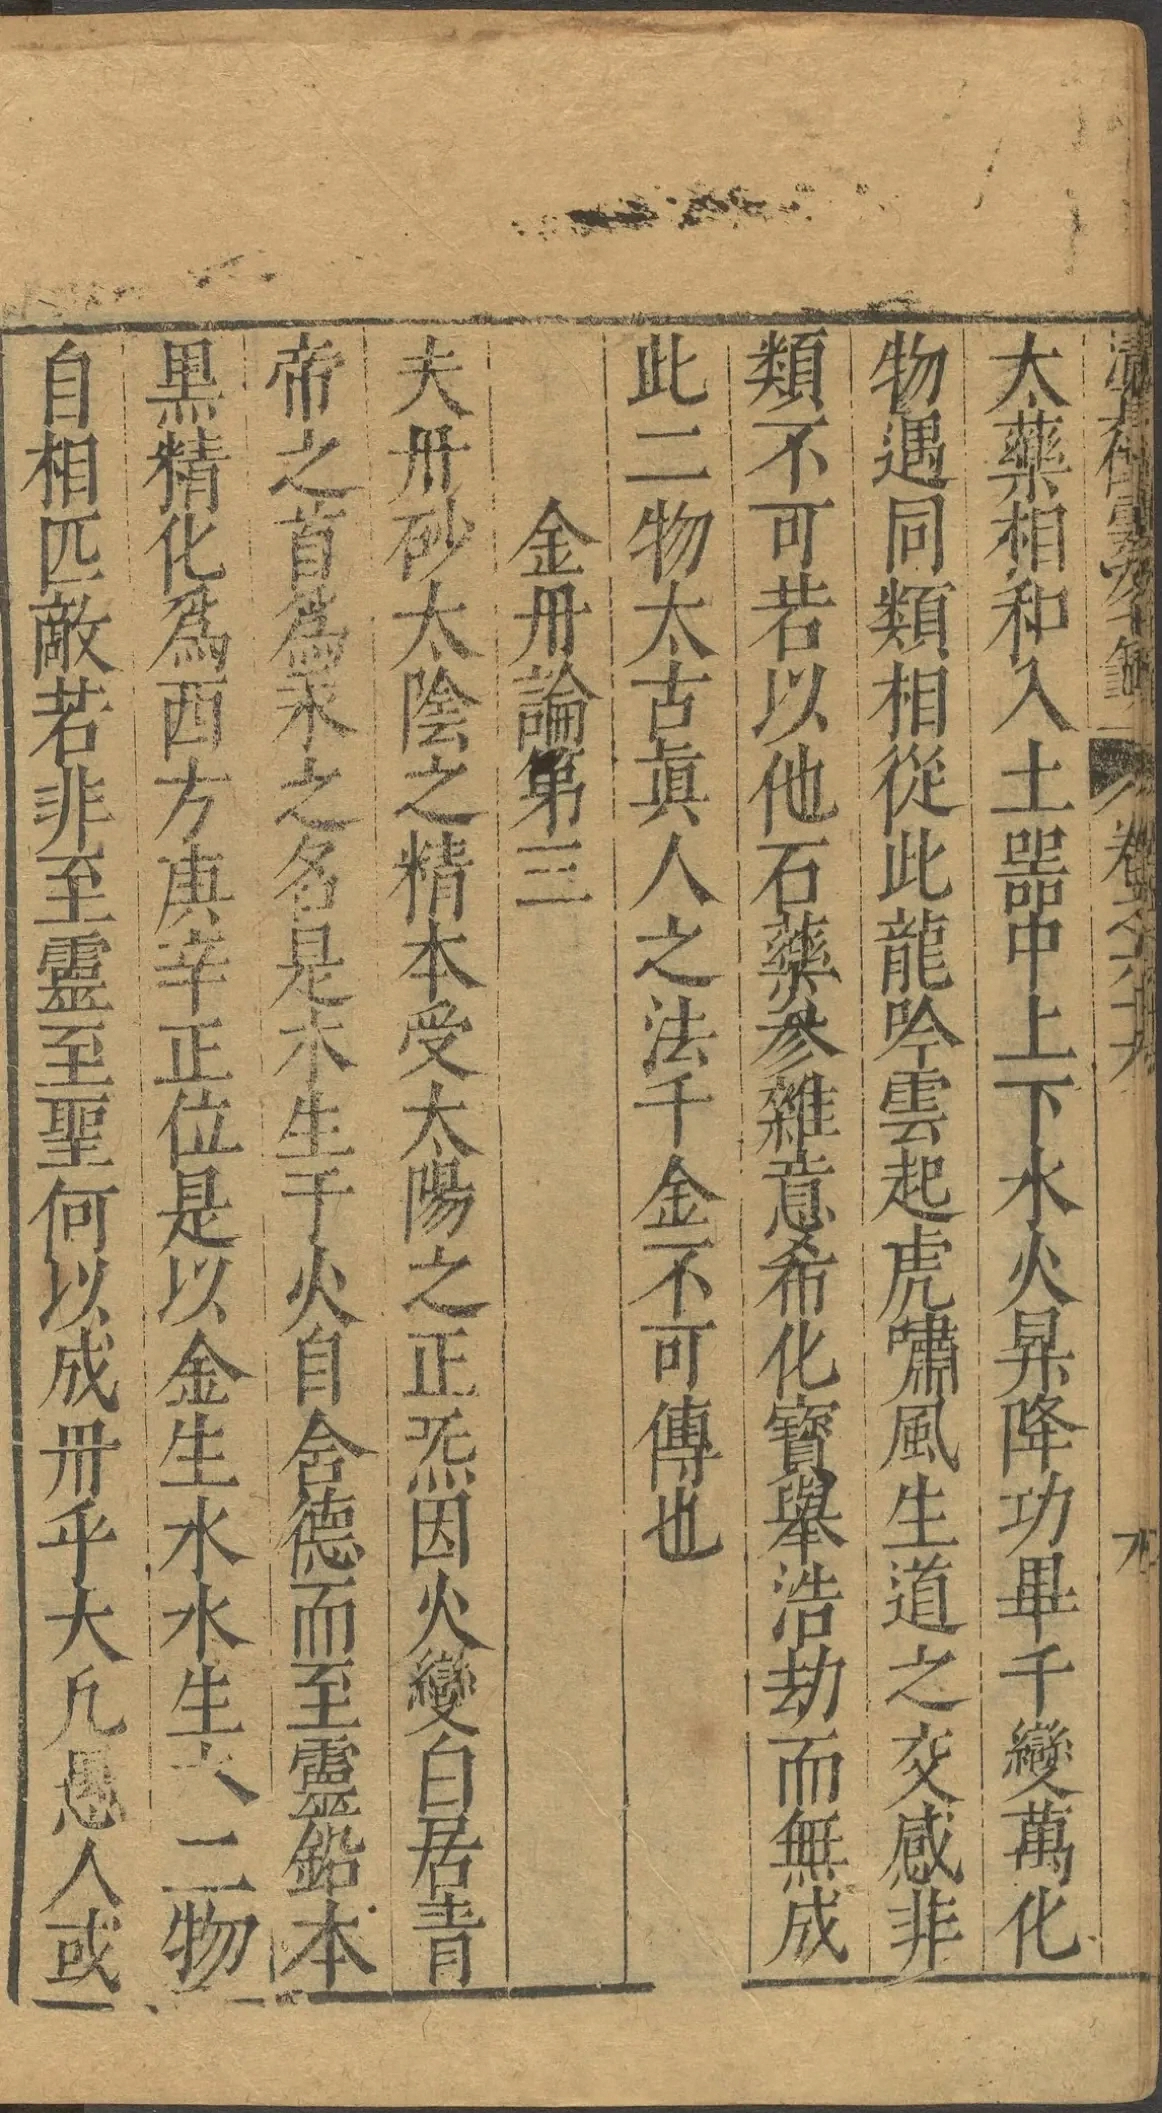 太藥相和入土噐中上下水火昇降功畢千變萬化
物遇同類相從此龍吟雲起虎嘯風生道之交感非
類不可若以他石藥參雜意希化寶舉浩劫而無成
此二物太古眞人之法千金不可傳也
金丹論第三
夫丹砂太陰之精本受太陽之正炁因火變白居青
帝之首爲汞之名是木生于火自含德而至靈鉛本
黑精化爲西方庚辛正位是以金生水水生 二物
自相匹敵若非至靈至聖何以成丹乎大凡愚人或